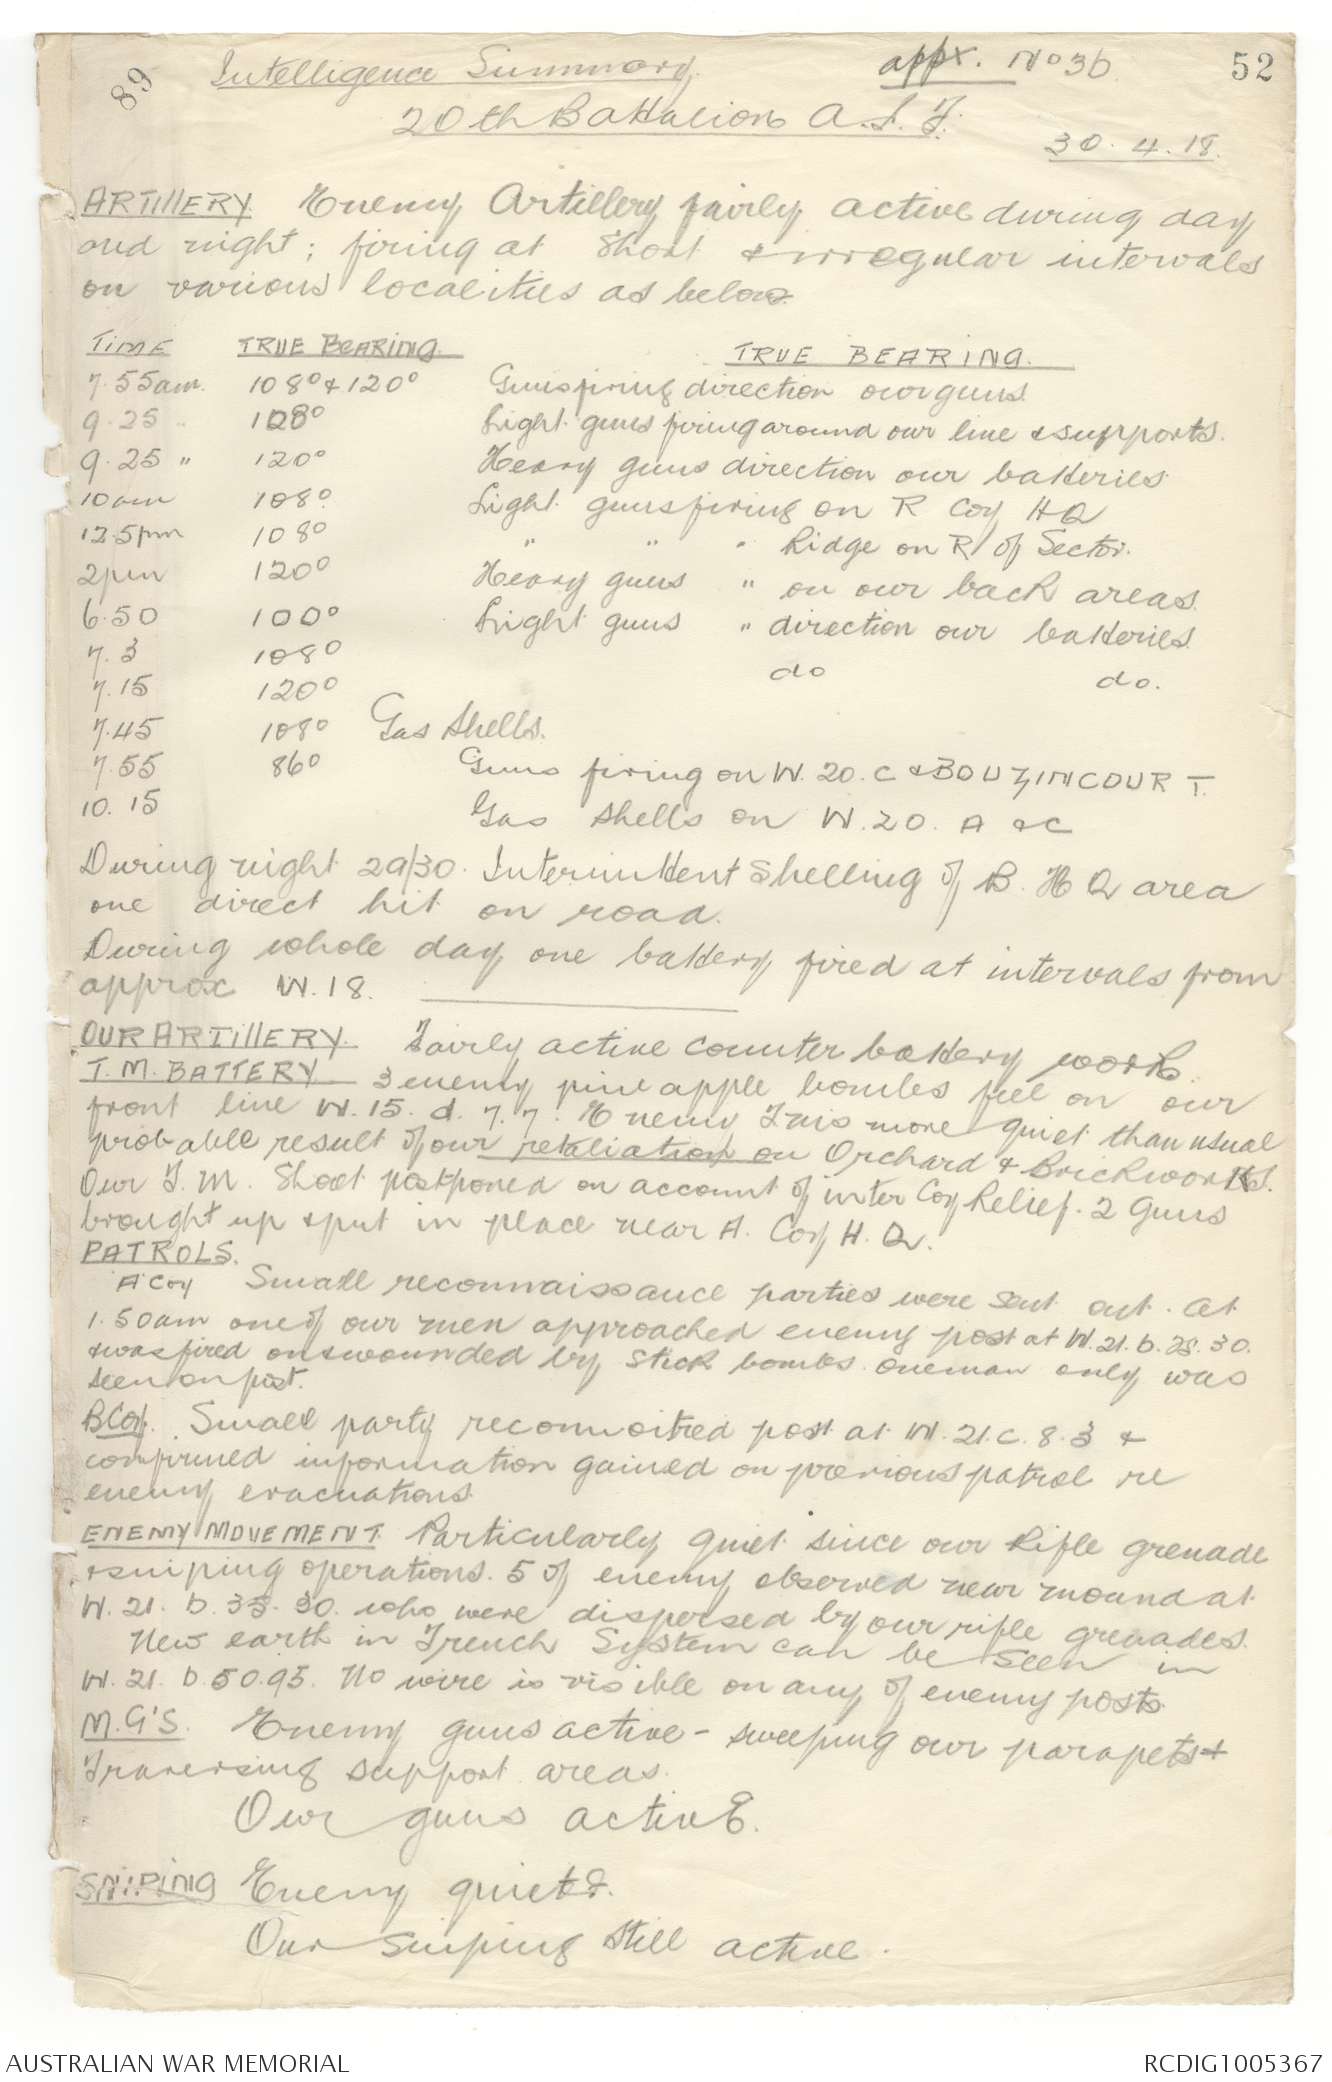 89
Intelligence Summary. appx. No 36 52
20th Battalion A.I.F.
30.4.18.
ARTIllERY Enemy Artillery fairly active during day
and night; firing at short & irregular intervals
on various localities as below
TIME TRUE BEARING. TRUE BEARING.
7.55am. 108° & 120° Guns firing direction our guns
9.25 " 108° Light guns firing around our line & supports.
9.25 " 120° Heavy guns direction our batteries
10am 108° Light guns firing on R Coy HQ
12.5pm 108° " " " Ridge on R of Sector.
2pm 120° Heavy guns " on our back areas
6.50 100° Light guns " direction our batteries
7.3 108° do do.
7.15 120°
7.45 108° Gas shells.
7.55 86° Guns firing on W.20.C & BOUZINCOURT.
10.15 Gas shells on W.20.A & C
During night 29/30. Intermittent shelling of B.HQ area
one direct hit on road.
During whole day one battery fired at intervals from
approx W.18.
OUR ARTIllERY. Fairly active counter battery work.
T.M. BATTERY 3 enemy pineapple bombs fell on our
front line W.15.d.7.7. Enemy T.M's more quiet than usual
probable result of our retaliation on Orchard & Brickworks.
Our T.M. Shoot postponed on account of inter Coy Relief. 2 Guns
brought up & put in place near A. Coy H.Q.
PATROLS.
A Coy Small reconnaissance parties were sent out. At
1.50am one of our men approached enemy post at W.21.b.25.30.
& was fired on & wounded by stick bombs. one man only was
seen on post.
B Coy. Small party reconnoitred post at W.21.c.8.3 &
confirmed information gained on previous patrol re
enemy evacuations
ENEMY MOVEMENT Particularly quiet since our Rifle grenade
& sniping operations. 5 of enemy observed near mound at
W.21.b.35.30. who were dispersed by our rifle grenades.
New earth in Trench System can be seen in
W.21.b.50.95. No wire is visible on any of enemy posts
M.G'S. Enemy guns active - sweeping our parapets &
Traversing support areas.
Our guns active.
SNIPING Enemy quiet.
Our sniping still active.
AUSTRALIAN WAR MEMORIAL RCDIG1005367